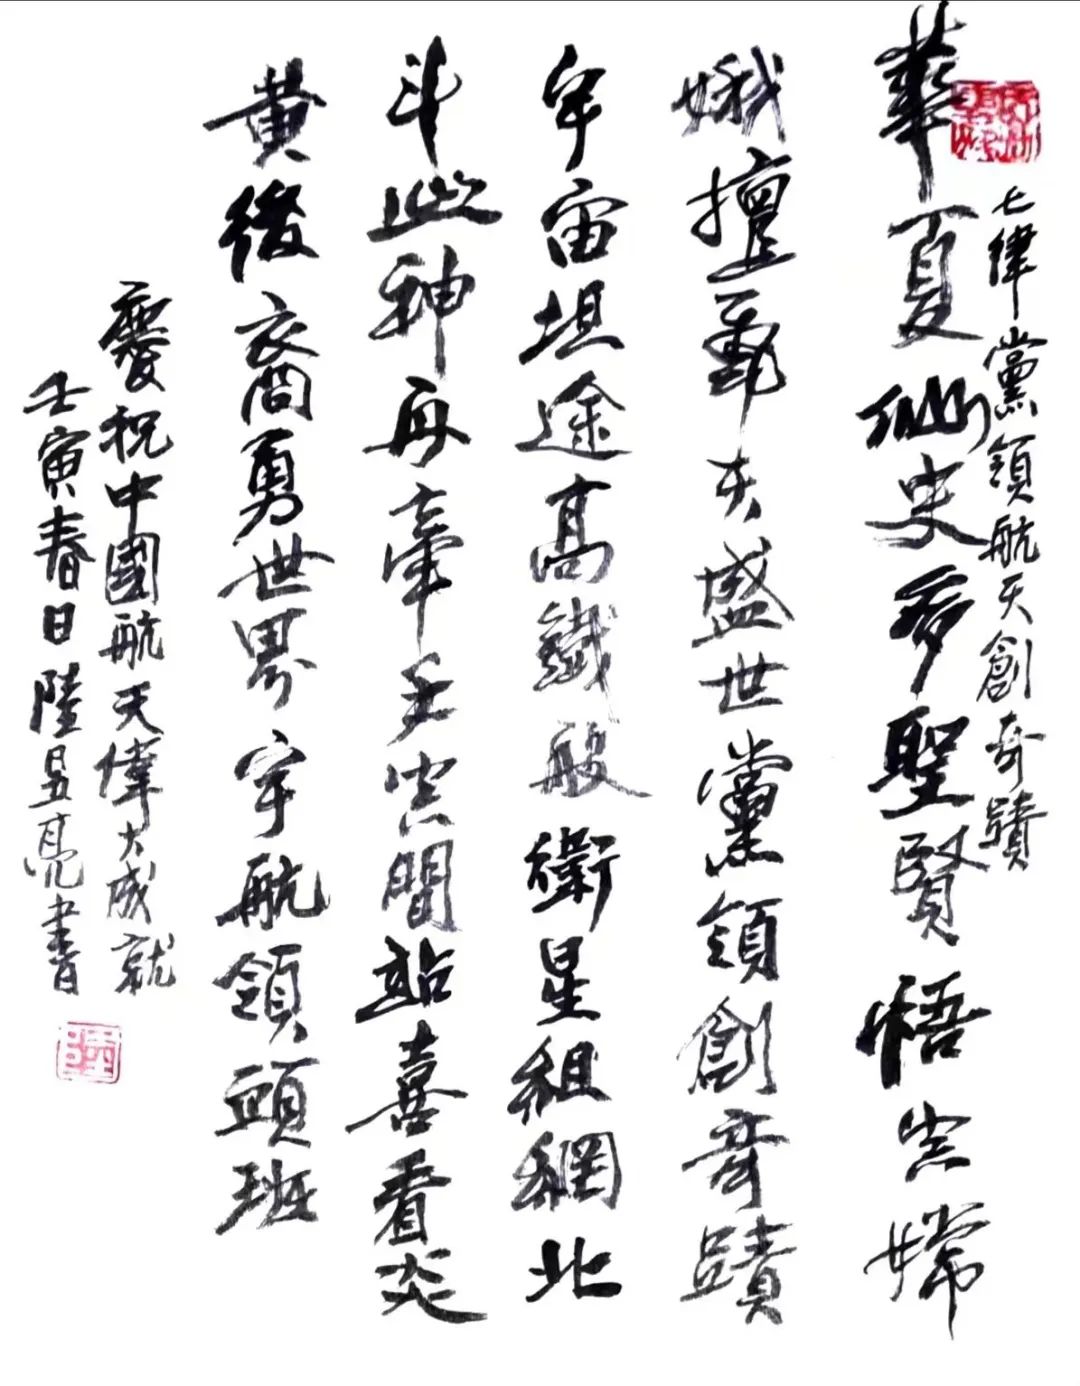 七律黨領航天創奇蹟
華夏仙史多聖賢悟空嫦
娥擅飛天盛世黨領創奇蹟
宇宙坦途高鐵般衛星組網北
斗巡神舟牽手空間站喜看炎
黄後裔勇世界宇航領頭班
慶祝中國航天偉大成就
壬寅春日陸昱亮書